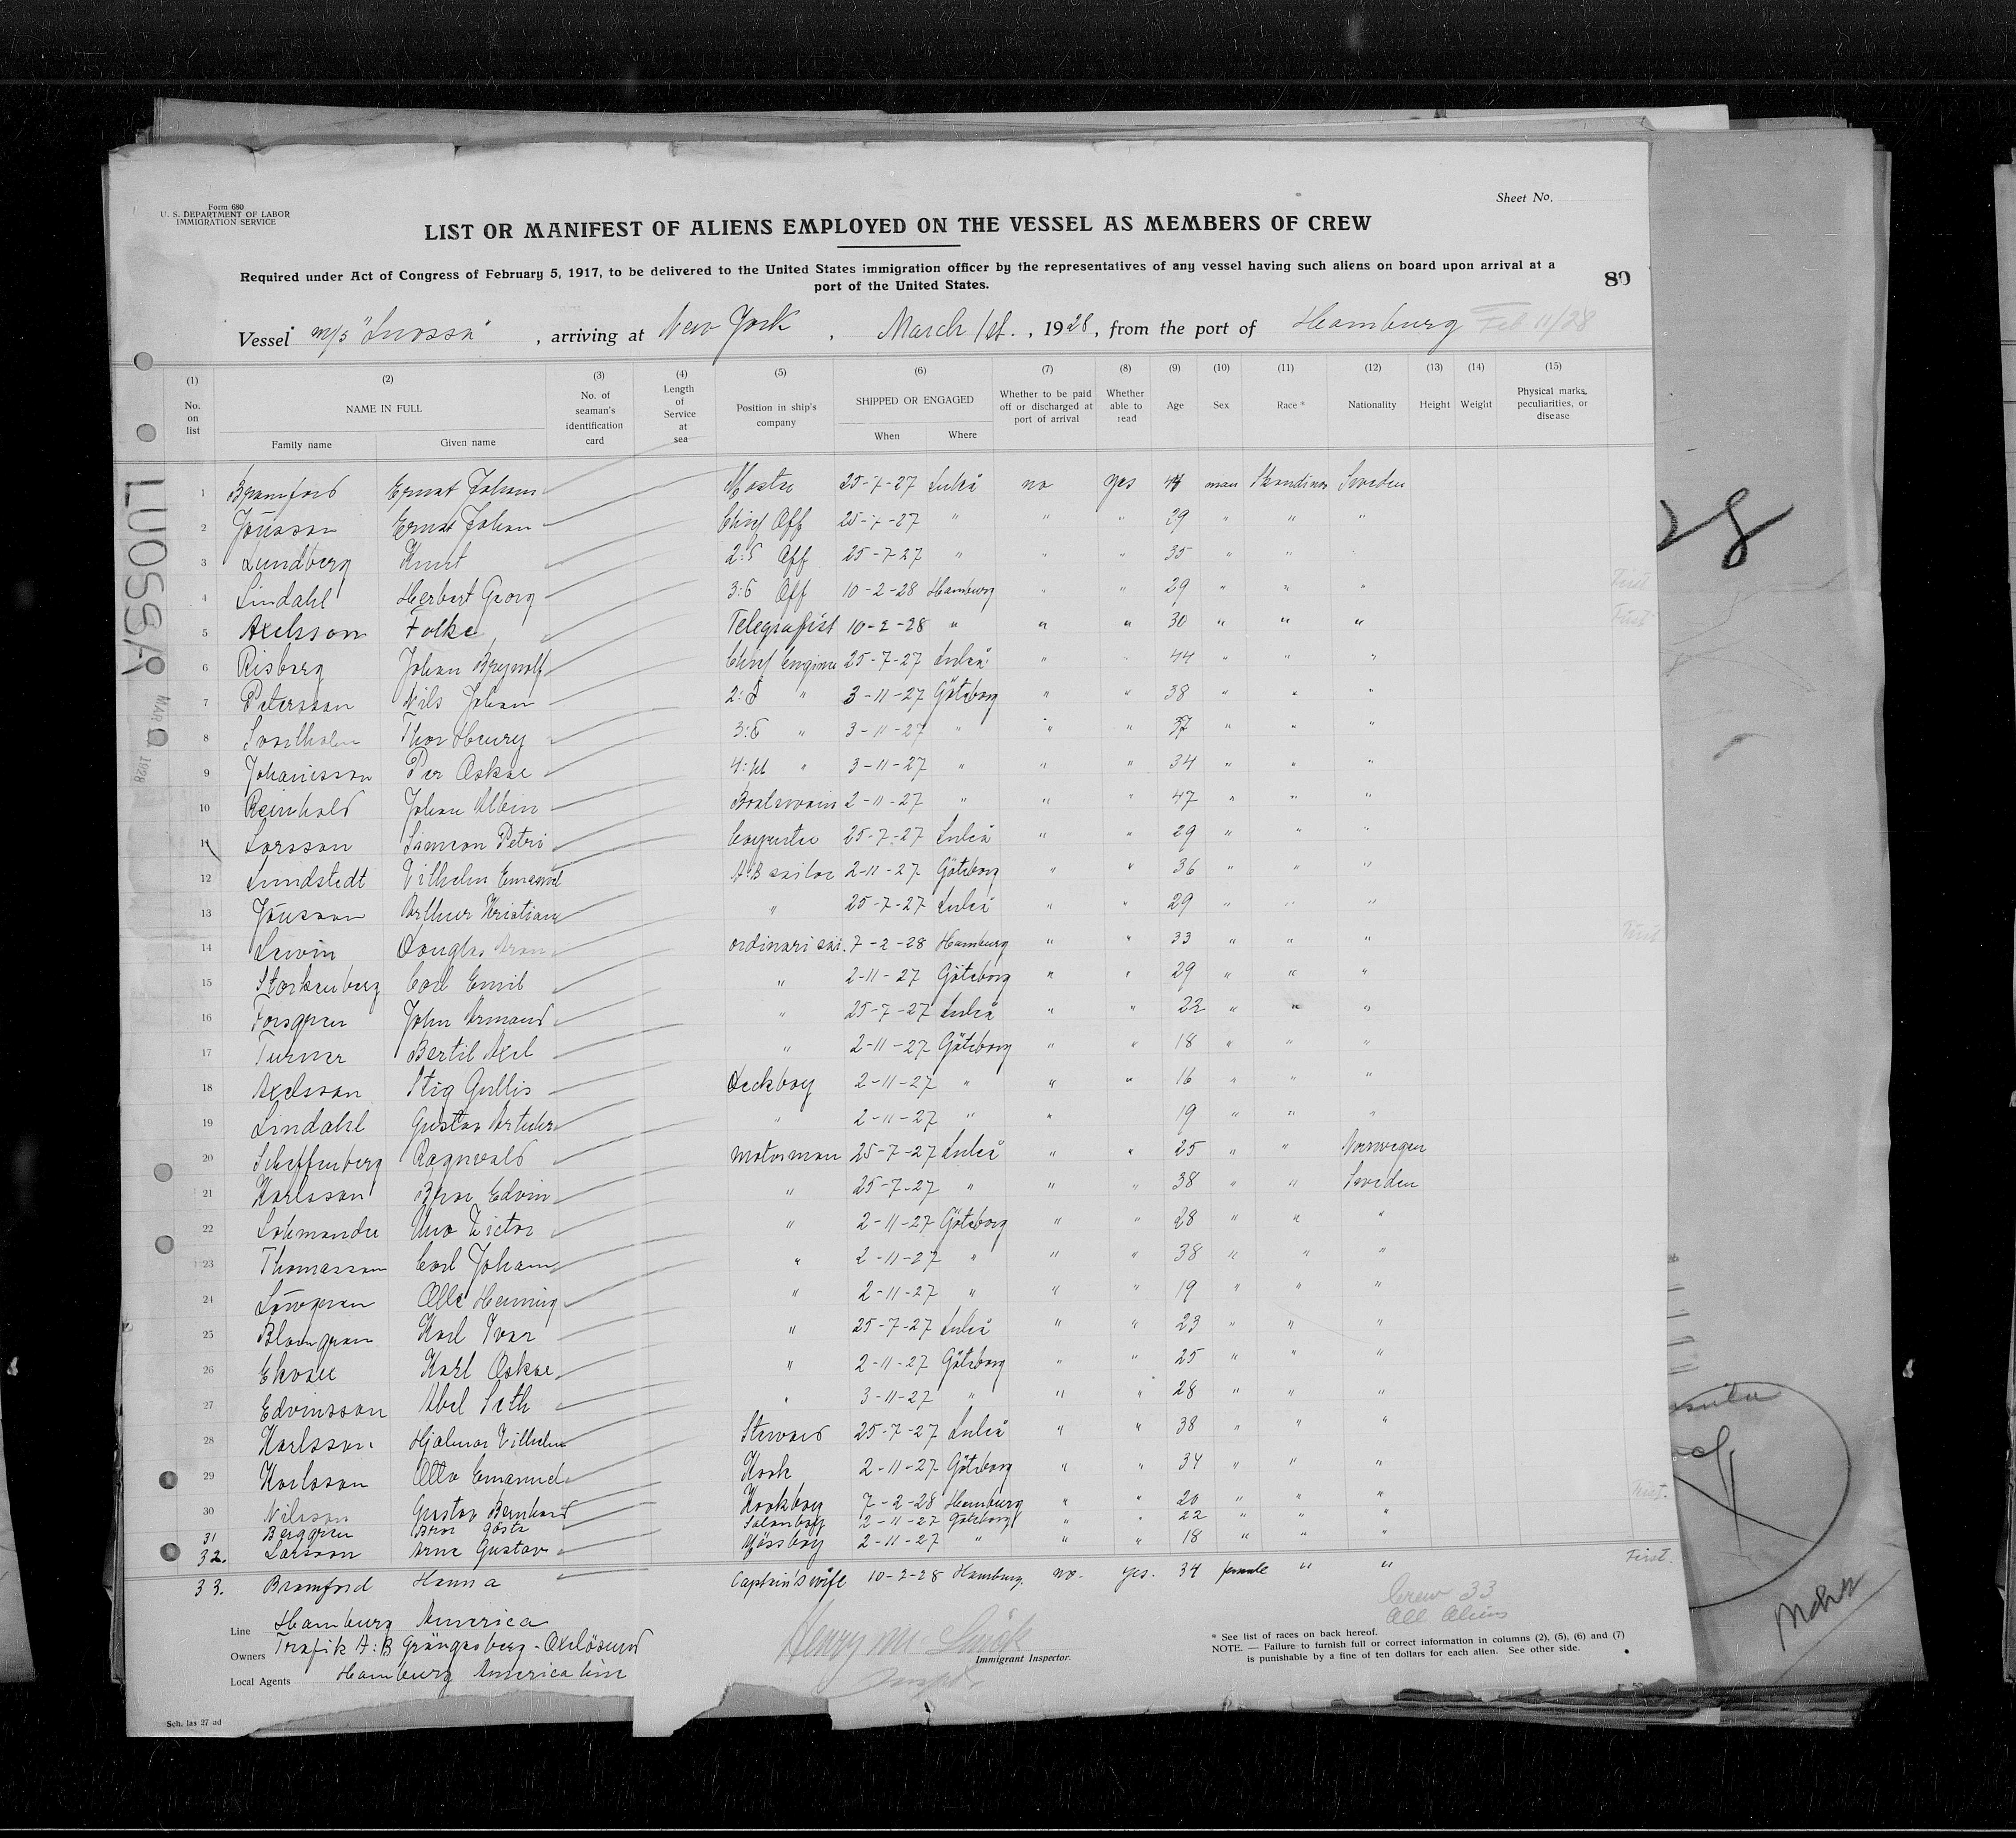 Form 680
U. S. DEPARTMENT OF LABOR
IMMIGRATION SERVICE
Sheet No.
LIST OR MANIFEST OF ALIENS EMPLOYED ON THE VESSEL AS MEMBERS OF CREW
Required under Act of Congress of February 5, 1917, to be delivered to the United States immigration officer by the representatives of any vessel having such aliens on board upon arrival at a
port of the United States.
80
Vessel m/s "Luossa", arriving at New York, March 1st., 1928, from the port of Hamburg Feb 11/28
(1) (2) (3) (4) (5) (6) (7) (8) (9) (10) (11) (12) (13) (14) (15)
No. on list NAME IN FULL No. of seaman's identification card Length of Service at sea Position in ship's company SHIPPED OR ENGAGED Whether to be paid off or discharged at port of arrival Whether able to read Age Sex Race * Nationality Height Weight Physical marks, peculiarities, or disease
Family name Given name When Where
1 Bramford Ernst Johan Master 25-7-27 Luleå no yes 44 man Skandinav Sweden
2 Jönsson Ernst Johan Chief Off 25-7-27 " " " 29 " " "
3 Lundberg Knut 2:d Off 25-7-27 " " " 35 " "
4 Lindahl Herbert Georg 3:d Off 10-2-28 Hamburg " " 29 " " " First
5 Axelsson Folke Telegrafist 10-2-28 " " " 30 " " " First
6 Risberg Johan Brynolf Chief Engine 25-7-27 Luleå " " 44 " " "
7 Petersson Nils Johan 2:d " 3-11-27 Göteborg " " 38 " " "
8 Thor Henry 3:d " 3-11-27 " " " 37 " " "
9 Johanisson Per Oskar 4:th " 3-11-27 " " " 34 " " "
10 Reinhold Johan Albin Boatswain 2-11-27 " " " 47 " " "
11 Larsson Simeon Petri Carpenter 25-7-27 Luleå " " 29 " " "
12 Lundstedt Vilhelm Emanuel A B sailor 2-11-27 Göteborg " " 36 " " "
13 Jönsson Arthur Kristian " 25-7-27 Luleå " " 29 " " "
14 Lewin Douglas Aron ordinari sai. 7-2-28 Hamburg " " 33 " " " First
15 Storkenberg Carl Emil " 2-11-27 Göteborg " " 29 " " "
16 Forsgren John Armand " 25-7-27 Luleå " " 22 " " "
17 Turner Bertil Axel " 2-11-27 Göteborg " " 18 " " "
18 Axelsson Stig Gullis Deckboy 2-11-27 " " " 16 " " "
19 Lindahl Gustav Arthur " 2-11-27 " " 19 " " "
20 Scheffenberg Ragnvald motorman 25-7-27 Luleå " " 25 " " Norwegen
21 Karlsson Bror Edvin " 25-7-27 " " " 38 " " Sweden
22 Uno Victor " 2-11-27 Göteborg " " 28 " " "
23 Thomasson Carl Johan " 2-11-27 " " " 38 " " "
24 Lövgren Olle Henning " 2-11-27 " " " 19 " " "
25 Blomgren Karl Ivar " 25-7-27 Luleå " " 23 " " "
26 Karl Oskar " 2-11-27 Göteborg " " 25 " " "
27 Edvinsson Abel Seth " 3-11-27 " " " 28 " " "
28 Karlsson Hjalmar Vilhelm Steward 25-7-27 Luleå " " 38 " " "
29 Karlsson Otto Emanuel Kock 2-11-27 Göteborg " " 34 " " "
30 Nilsson Gustav Bernhard Kockboy 7-2-28 Hamburg " " 20 " " " First.
31 Berggren Bror Gösta Salonboy 2-11-27 Göteborg " " 22 " " "
32. Larsson Arne Gustav Mässboy 2-11-27 " " " 18 " " "
33. Bramford Hanna Captain's wife 10-2-28 Hamburg. no. yes. 34 female " " First.
Crew 33
all Aliens
Line Hamburg America
Owners Trafik A:B Grängesberg-Oxelösund
Local Agents Hamburg America line
Henry M.
Immigrant Inspector.
Inspt.
* See list of races on back hereof.
NOTE. — Failure to furnish full or correct information in columns (2), (5), (6) and (7)
is punishable by a fine of ten dollars for each alien. See other side.
Sch. las 27 ad
LUOSSA
MAR 1928
28